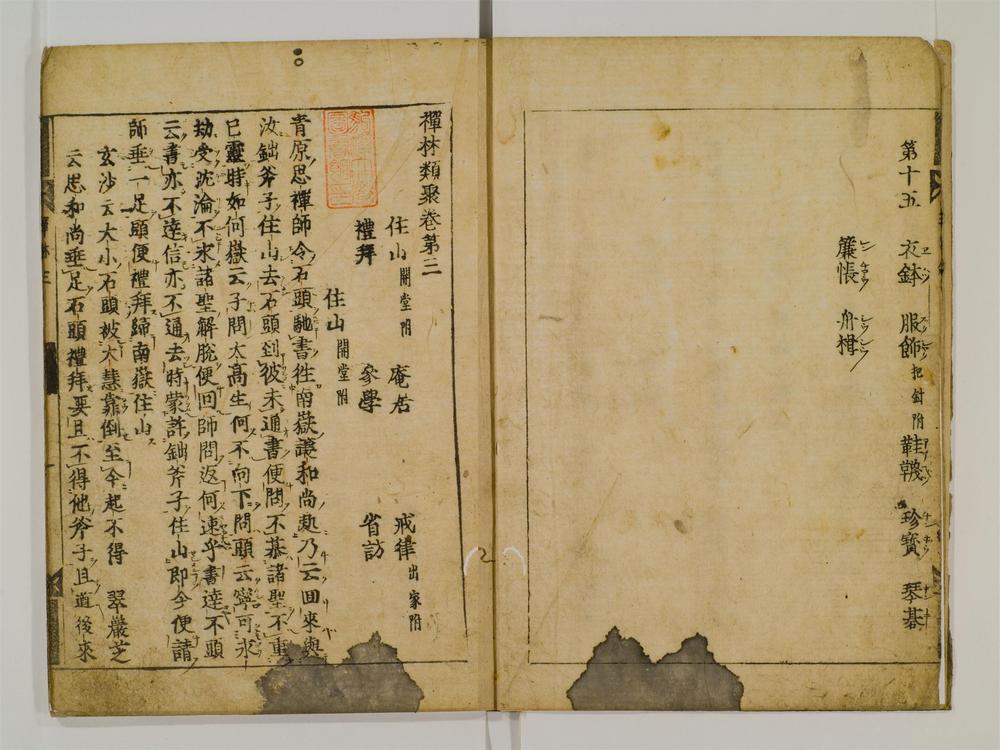 第十五 衣鉢 服飾 把針附 鞋韈 珍寶 琴碁
簾帳 舟楫
禪林類聚卷第三
住山 開堂附 庵居 戒律 出家附
禮拜 參學 省訪
住山 開堂附
青原思禪師令石頭馳書徃南嶽讓和尚處乃云回來與
汝鈯斧子住山去石頭到彼未通書便問不慕諸聖不重
已靈時如何嶽云子問太高生何不向下問頭云寧可永
劫受沈淪不求諸聖解脫便回師問返何速乎書達不頭
云書亦不達信亦不通去時蒙許鈯斧子住山即今便請
師垂一足頭便禮拜歸南嶽住山
玄沙云大小石頭被大慧靠倒至今起不得 翠巖芝
云思和尚垂足石頭禮拜要且不得他斧子且道後來